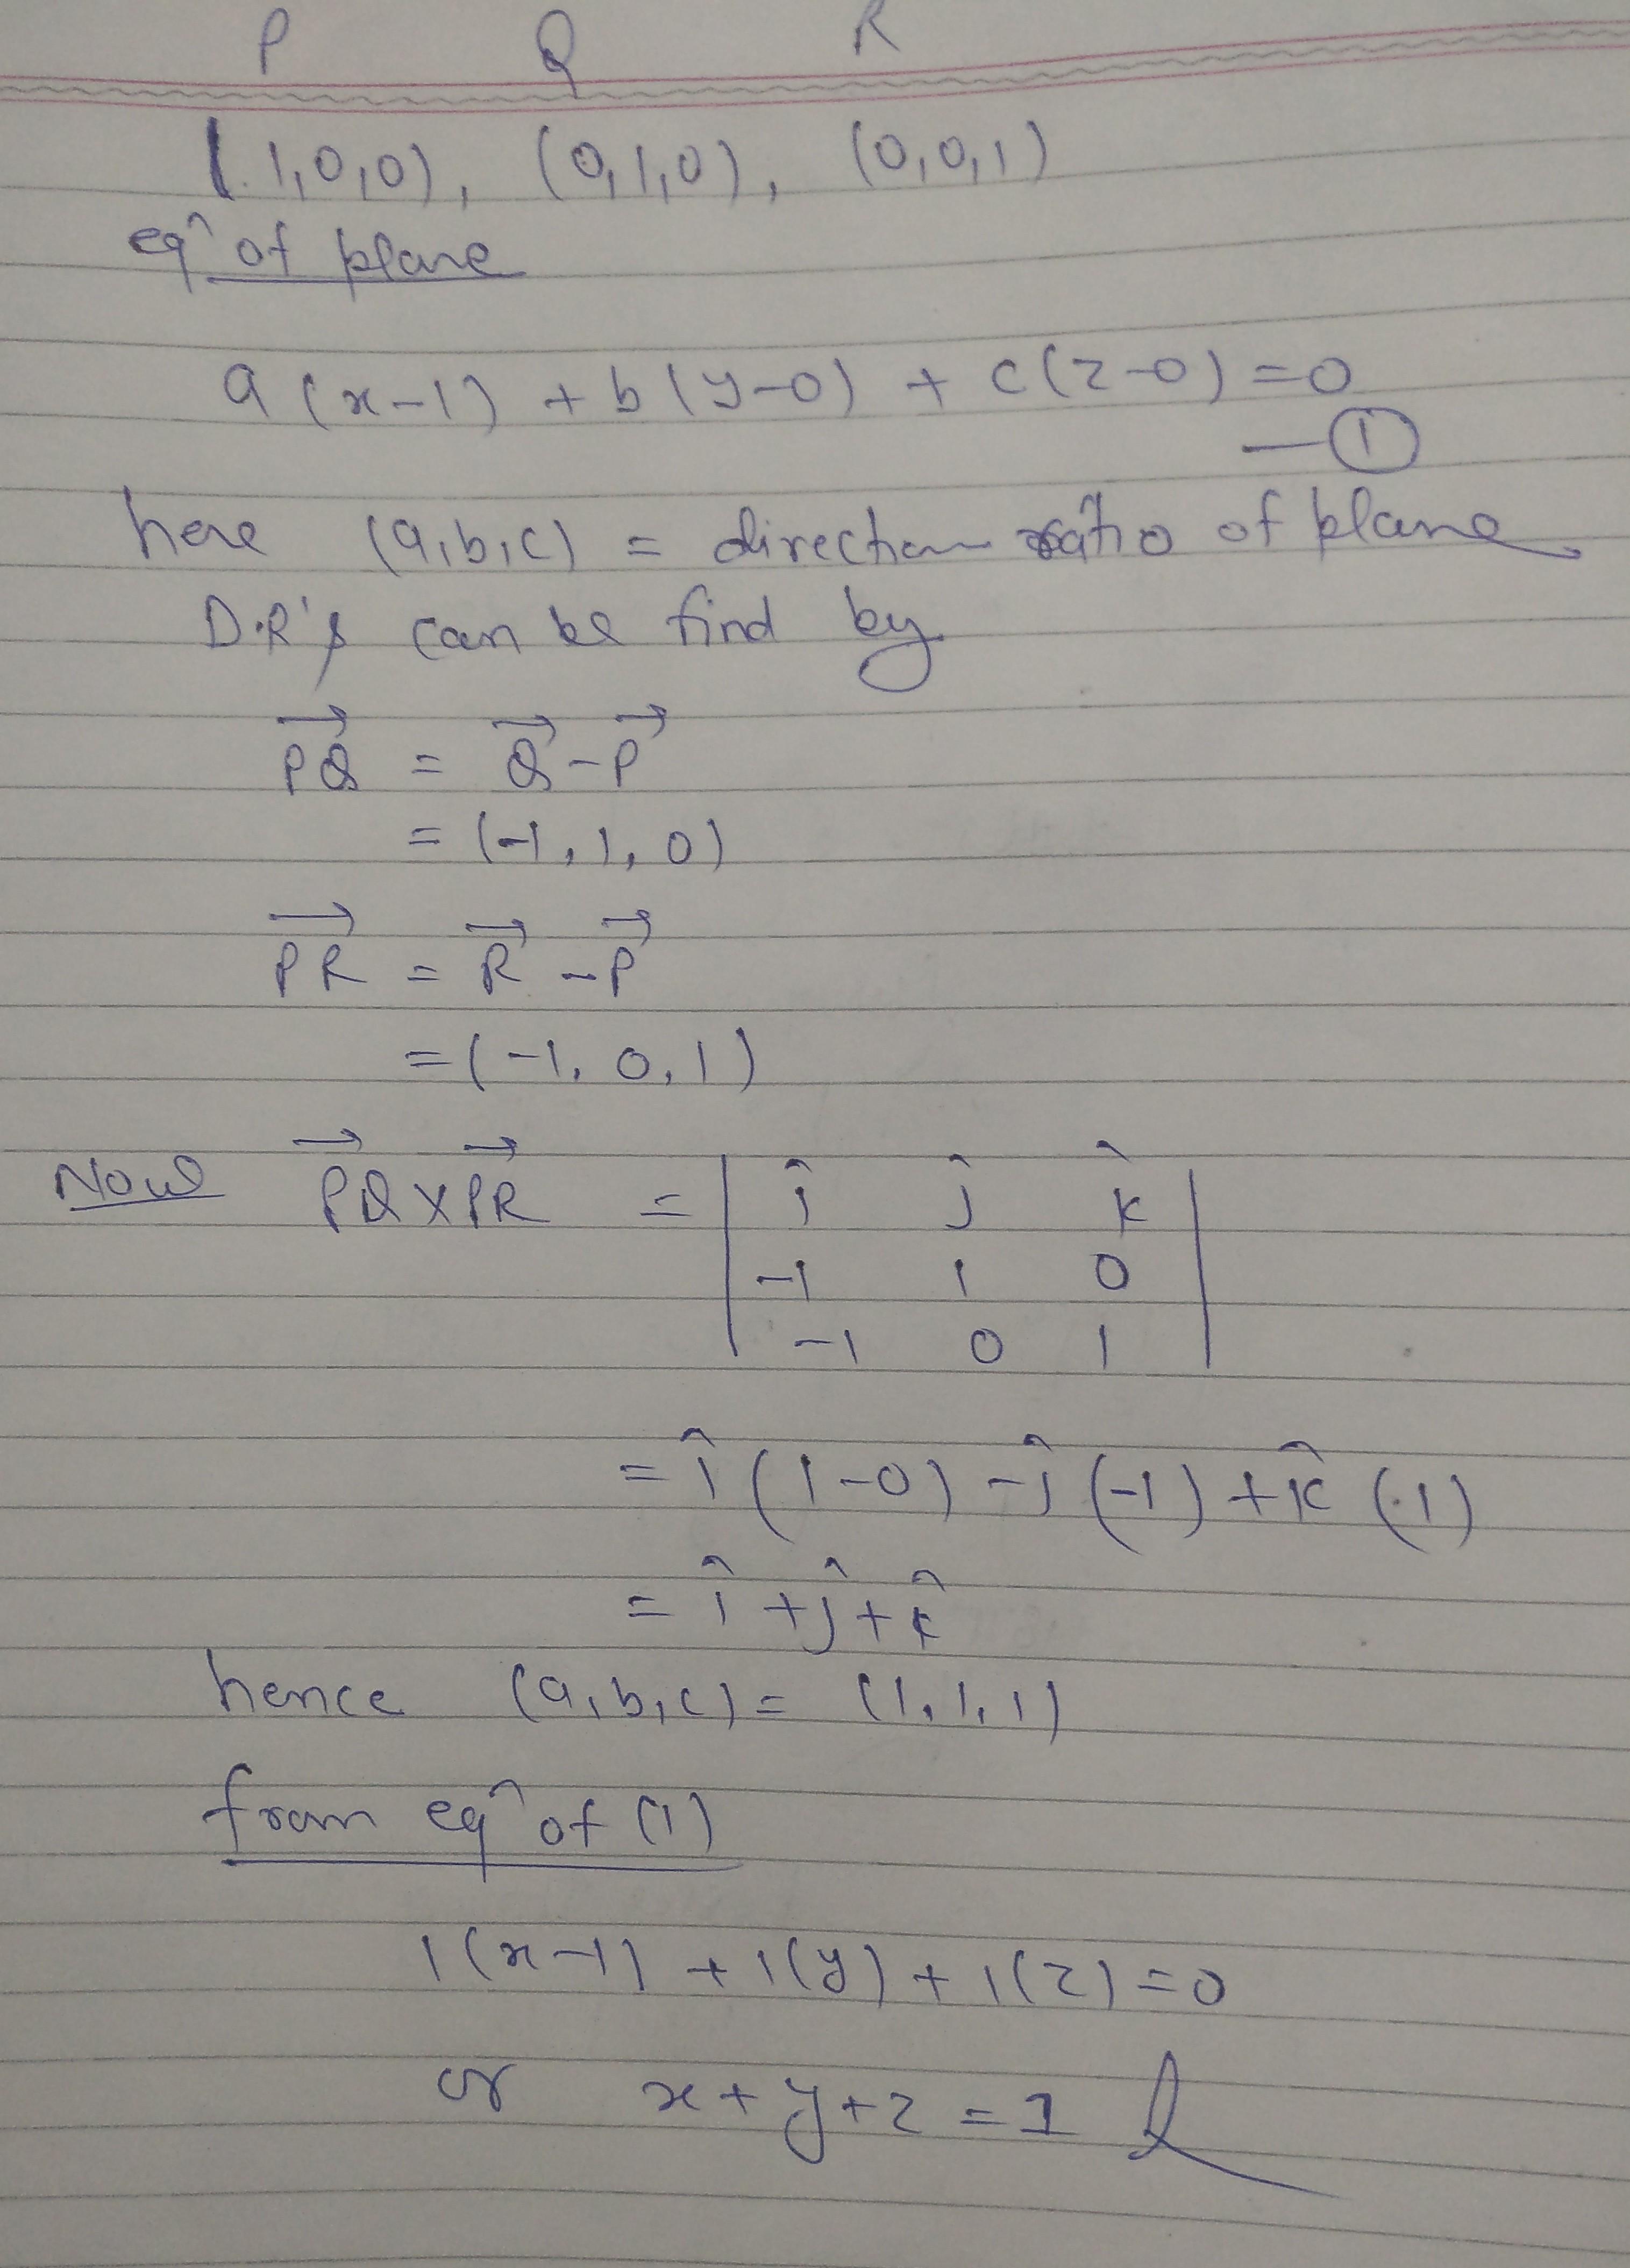 P Q R
(1,0,0), (0,1,0), (0,0,1)
eqⁿ of plane
a(x-1) + b(y-0) + c(z-0) = 0
— ①
here (a,b,c) = direction ratio of plane
D.R's can be find by
→PQ = →Q - →P
= (-1, 1, 0)
→PR = →R - →P
= (-1, 0, 1)
Now →PQ × →PR = | î ĵ k̂ |
| -1 1 0 |
| -1 0 1 |
= î (1-0) - ĵ (-1) + k̂ (1)
= î + ĵ + k̂
hence (a,b,c) = (1,1,1)
from eqⁿ of (1)
1(x-1) + 1(y) + 1(z) = 0
or x + y + z = 1